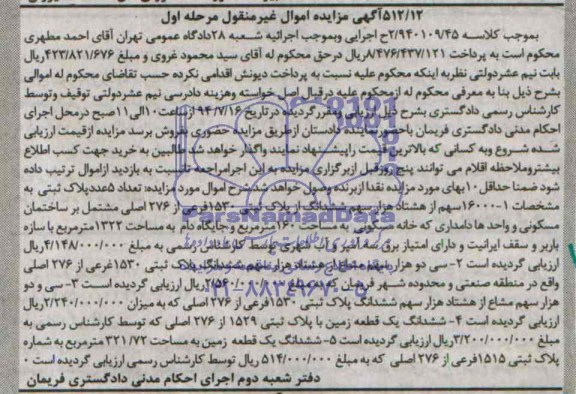 ۵۱۲/۱۲آگهی مزایده اموال غیرمنقول مرحله اول
بموجب کلاسه ۲/۹۴۰۱۰۹/۴۵ح اجرایی وبموجب اجرائیه شعبه ۲۸دادگاه عمومی تهران آقای احمد مطهری
محکوم است به پرداخت ۸/۴۷۶/۴۳۷/۱۲۱ریال درحق محکوم له آقای سید محمود غروی و مبلغ ۴۲۳/۸۲۱/۶۷۶ریال
بابت نیم عشردولتی نظربه اینکه محکوم علیه نسبت به پرداخت دیونش اقدامی نکرده حسب تقاضای محکوم له اموالی
بشرح ذیل بنا به معرفی محکوم له ازمحکوم علیه درقبال اصل خواسته وهزینه دادرسی نیم عشردولتی توقیف وتوسط
کارشناس رسمی دادگستری بشرح ذیل ارزیابی ومقررگردیده درتاریخ ۹۴/۷/۱۶ ازساعت ۱۰الی۱۱صبح درمحل اجرای
احکام مدنی دادگستری فریمان باحضورنماینده دادستان ازطریق مزایده حضوری بفروش برسد مزایده ازقیمت ارزیابی
شده شروع وبه کسانی که بالاترین قیمت راپیشنهاد نمایند واگذار خواهد شد طالبین به خرید جهت کسب اطلاع
بیشتروملاحظه اقلام می توانند پنج روزقبل ازبرگزاری مزایده به این اجرامراجعه تانسبت به بازدید ازاموال ترتیب داده
شود ضمنا حداقل ۱۰بهای مورد مزایده نقدا ازبرنده وصول خواهد شد شرح اموال مورد مزایده: تعداد ۵عددپلاک ثبتی به
مشخصات ۱-۱۶۰۰۰سهم از هشتاد هزار سهم ششدانگ از پلاک ثبتی ۱۵۳۰فرعی از ۲۷۶ اصلی مشتمل بر ساختمان
مسکونی و واحد ها دامداری که خانه مسکونی به مساحت ۱۶۰مترمربع و جایگاه دام به مساحت ۱۳۲۲مترمربع با سازه
باربر و سقف ایرانیت و دارای امتیاز برق سه فاز و آب شهری توسط کارشناس رسمی به مبلغ ۴/۱۴۸/۰۰۰/۰۰۰ریال
ارزیابی گردیده است ۲-سی دو هزار سهم مشاع از هشتاد هزار سهم ششدانگ پلاک ثبتی ۱۵۳۰غرعی از ۲۷۶ اصلی
واقع در منطقه صنعتی و محدوده شهر فریمان که به مبلغ ریال ارزیابی گردیده است ۳-سی و دو
هزار سهم مشاع از هشتاد هزار سهم ششدانگ پلاک ثبتی ۱۵۳۰فرعی از ۲۷۶ اصلی که به میزان ۲/۲۴۰/۰۰۰/۰۰۰ریال
ارزیابی گردیده است ۴- ششدانگ یک قطعه زمین با پلاک ثبتی ۱۵۲۹ از ۲۷۶ اصلی که توسط کارشناس رسمی به
مبلغ ۳/۲۰۰/۰۰۰/۰۰۰ریال ارزیابی گردیده است ۵-ششدانگ یک قطعه زمین به مساحت ۳۲۱/۷۲ مترمربع به شماره
پلاک ثبتی ۱۵۱۵فرعی از ۲۷۶ اصلی که به مبلغ ۵۱۴/۰۰۰/۰۰۰ ریال توسط کارشناس رسمی ارزیابی گردیده است ۰
دفتر شعبه دوم اجرای احکام مدنی دادگستری فریمان
ParsNamadData